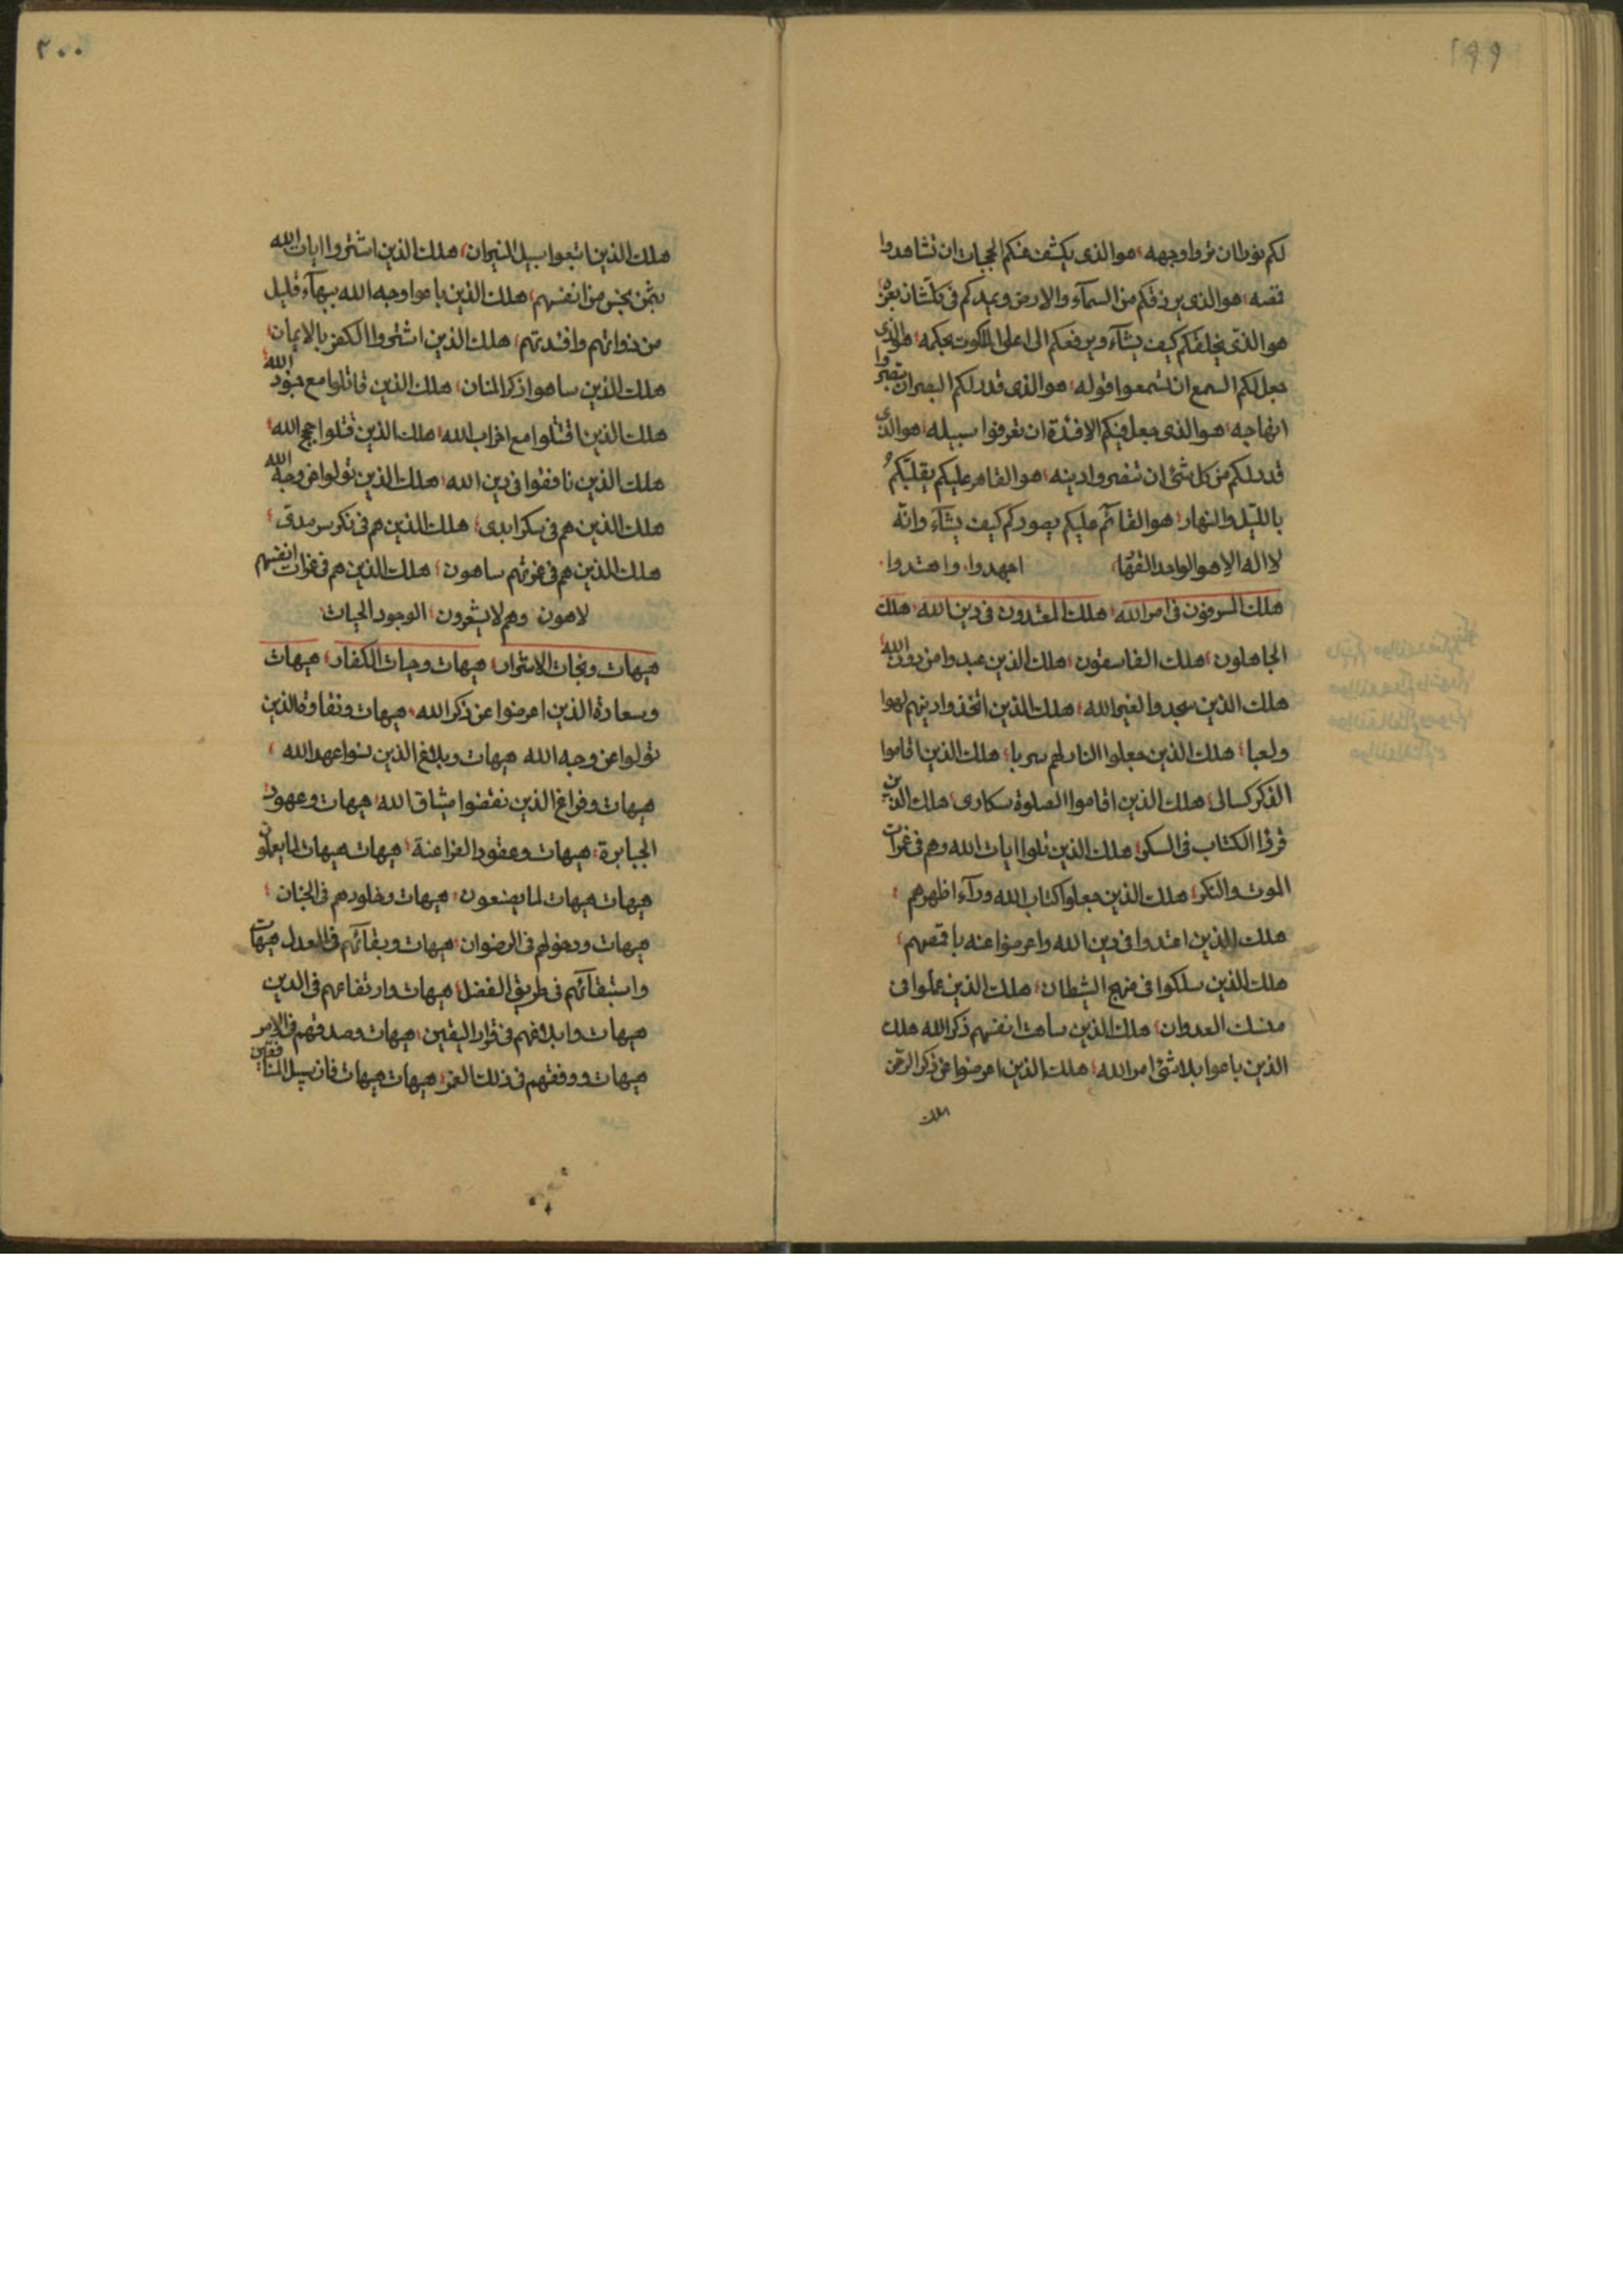 ١٩٩
لكم نورا ان تروا وجهه هو الذى يكشف عنكم الحجبات ان تشاهدوا
هو الذى يرزقكم من السمآء والارض ويمدكم فى كلشان بعزه
هو الذى يخلقكم كيف يشآء ويرفعكم الى اعلى الملكوت بحكمه هو الذى
جعل لكم السمع ان تسمعوا قوله هو الذى قدر لكم البصر ان تبصروا
ابهاجه هو الذى جعل فيكم الافئدة ان تعرفوا سبيله هو الذى
قدر لكم من كل شئ ان تنصروا دينه هو القاهر عليكم يقلبكم
بالليل والنهار هو القائم عليكم يصوركم كيف يشآء وانه
لا اله الا هو الواحد القهار اجهدوا واهتدوا
هلك المسرفون فى امر الله هلك المعتدون فى دين الله هلك
الجاهلون هلك الفاسقون هلك الذين عبدوا من دون الله
هلك الذين سجدوا لغير الله هلك الذين اتخذوا دينهم لهوا
ولعبا هلك الذين جعلوا النار لهم سربا هلك الذين اقاموا
الذكر كسالى هلك الذين اقاموا الصلوة سكارى هلك الذين
قرؤا الكتاب فى السكر هلك الذين تلوا ايات الله وهم فى غمرات
الموت والنكر هلك الذين جعلوا كتاب الله ورآء اظهرهم
هلك الذين اعتدوا فى دين الله واعرضوا عنه
هلك الذين سلكوا فى منهج الشيطان هلك الذين عملوا فى
منسك العدوان هلك الذين ساهت انفسهم ذكر الله هلك
الذين باعوا بلاشئ امر الله هلك الذين اعرضوا عن ذكر الرحمن
هلك
٢٠٠
هلك الذين اتبعوا سبيل النيران هلك الذين اشتروا ايات الله
بثمن بخس من انفسهم هلك الذين باعوا وجه الله ببهآء قليل
من ذواتهم وافئدتهم هلك الذين اشتروا الكفر بالايمان
هلك الذين ساهوا ذكر المنان هلك الذين قاتلوا مع جنود الله
هلك الذين اقتتلوا مع احزاب الله هلك الذين قتلوا حجج الله
هلك الذين نافقوا فى دين الله هلك الذين تولوا عن وجه الله
هلك الذين هم فى سكر ابدى هلك الذين هم فى نكر سرمدى
هلك الذين هم فى غمرتهم ساهون هلك الذين هم فى غمرات انفسهم
لاهون وهم لا يشعرون الوجود الحيات
هيهات ونجات الاشرار هيهات وحيات الكفار هيهات
وسعادة الذين اعرضوا عن ذكر الله هيهات ونقاوة الذين
تولوا عن وجه الله هيهات وبلاغ الذين نسوا عهد الله
هيهات وفراغ الذين نقضوا ميثاق الله هيهات وعهود
الجبابرة هيهات وعقود الفراعنة هيهات هيهات لما يعملون
هيهات هيهات لما يصنعون هيهات وخلودهم فى الجنان
هيهات ودخولهم فى الرضوان هيهات وبقائهم فى العدل هيهات
واستبقائهم فى طريق الفضل هيهات وارتفاعهم فى الدين
هيهات وابلاغهم فى قرار اليقين هيهات وصدقهم فى الامر
هيهات ووقفهم فى ذلك العز هيهات هيهات فان سبيل المنافقين